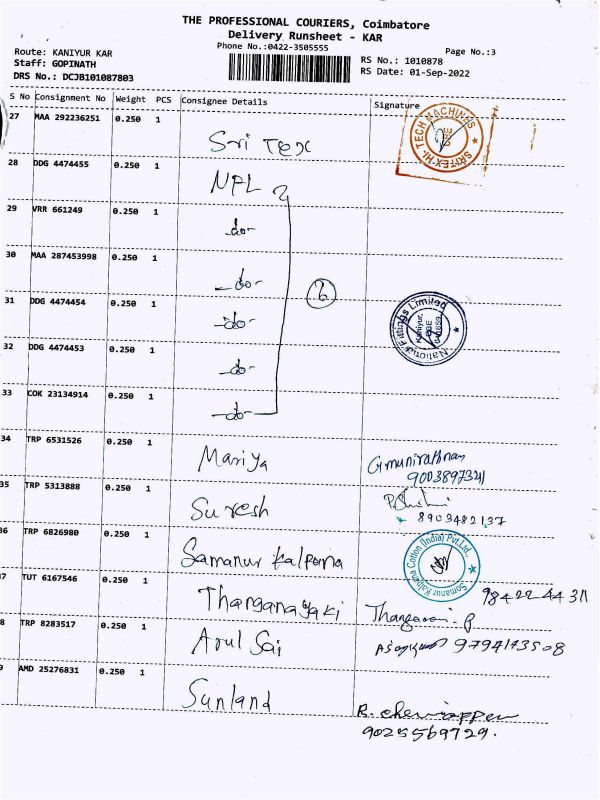 THE PROFESSIONAL COURIERS, Coimbatore
Delivery Runsheet - KAR
Phone No.:0422-3505555
Page No.:3
Route: KANIYUR KAR
Staff: GOPINATH
DRS No.: DCJB101087803
RS No.: 1010878
RS Date: 01-Sep-2022
S No Consignment No Weight PCS Consignee Details Signature
27 MAA 292236251 0.250 1 Sri Tex
SRITEX-HI-TECH MACHINES
28 DDG 4474455 0.250 1 NFL
29 VRR 661249 0.250 1 -do-
30 MAA 287453998 0.250 1 -do-
6
31 DDG 4474454 0.250 1 -do-
National Fittings Limited
Kaniyur,
CBE
641659
32 DDG 4474453 0.250 1 -do-
33 COK 23134914 0.250 1 -do-
34 TRP 6531526 0.250 1 Mariya
9003897321
35 TRP 5313888 0.250 1 Suresh
8903482137
36 TRP 6826980 0.250 1 Samanur Kalpana
Somanur Kalpana Cotton (India) Pvt.Ltd.,
7 TUT 6167546 0.250 1 Thanganayaki
98422-44311
8 TRP 8283517 0.250 1 Arul Sai
9794173508
9 AMD 25276831 0.250 1 Sunland
9025569729.